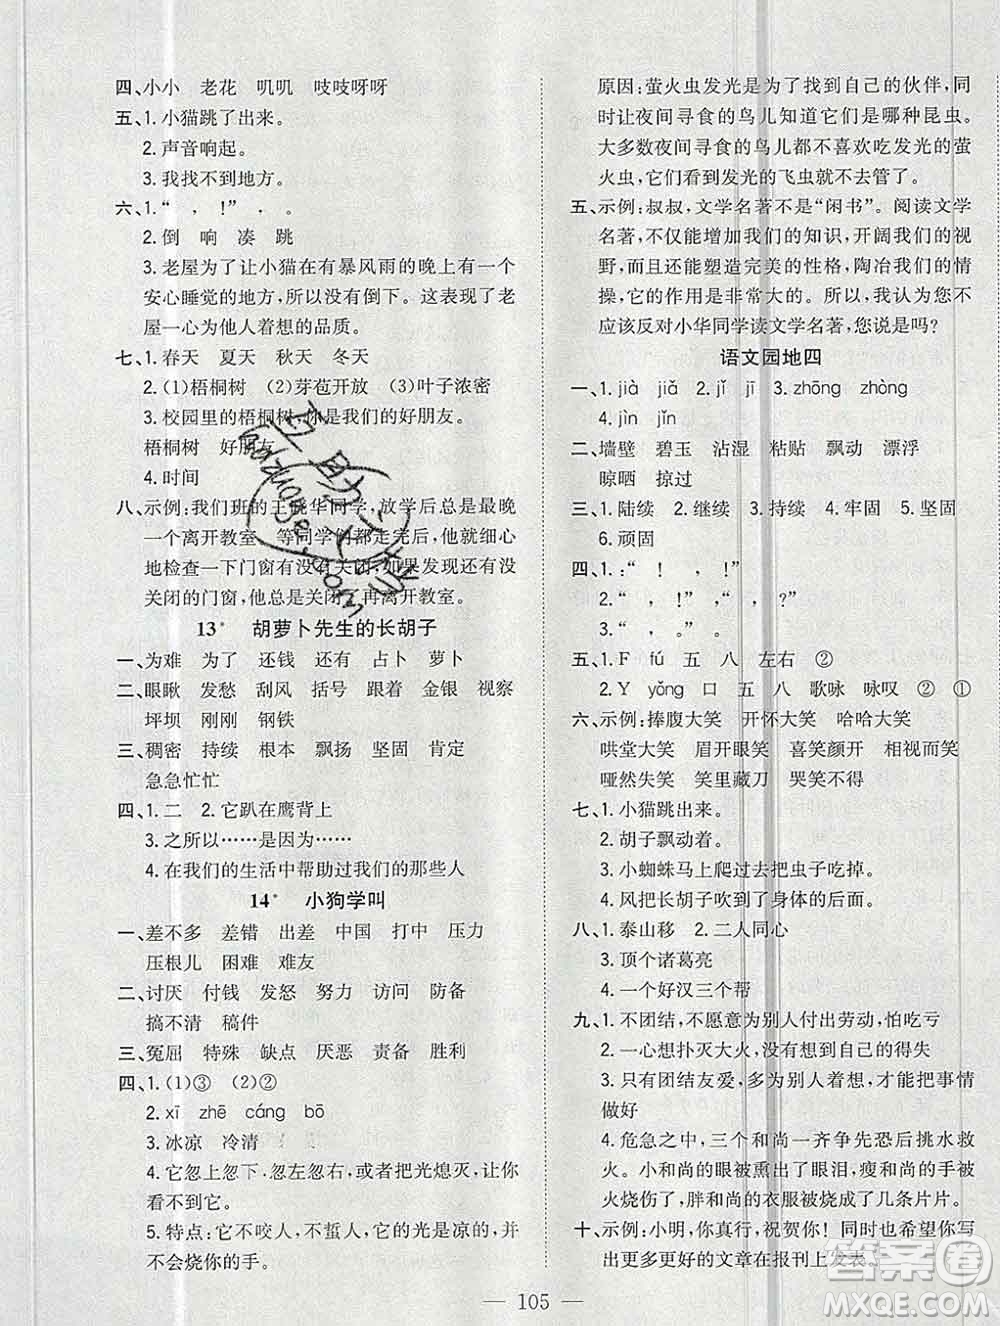 四、小小 老花 叽叽 吱吱呀呀
五、1. 小猫跳了出来。
2. 声音响起。
3. 我找不到地方。
六、1. “ ， ！” ， 。
2. 倒 响 凑 跳
3. 老屋为了让小猫在有暴风雨的晚上有一个
安心睡觉的地方，所以没有倒下。这表现了老
屋一心为他人着想的品质。
七、1. 春天 夏天 秋天 冬天
2. (1)梧桐树 (2)芽苞开放 (3)叶子浓密
3. 校园里的梧桐树，你是我们的好朋友。
梧桐树 好朋友
4. 时间
八、示例：我们班的王晓华同学，放学后总是最晚
一个离开教室。等同学们都走完后，他就细心
地检查一下门窗有没有关闭，如果发现有没有
关闭的门窗，他总是关闭了再离开教室。
13* 胡萝卜先生的长胡子
一、为难 为了 还钱 还有 占卜 萝卜
二、眼瞅 发愁 刮风 括号 跟着 金银 视察
坪坝 刚刚 钢铁
三、稠密 持续 根本 飘扬 坚固 肯定
急急忙忙
四、1. 二 2. 它趴在鹰背上
3. 之所以……是因为……
4. 在我们的生活中帮助过我们的那些人
14* 小狗学叫
一、差不多 差错 出差 中国 打中 压力
压根儿 困难 难友
二、讨厌 付钱 发怒 努力 访问 防备
搞不清 稿件
三、冤屈 特殊 缺点 厌恶 责备 胜利
四、1. (1)③ (2)②
2. xī zhē cáng bō
3. 冰凉 冷清
4. 它忽上忽下、忽左忽右，或者把光熄灭，让你
看不到它。
5. 特点：它不咬人，不蜇人，它的光是凉的，并
不会烧你的手。
原因：萤火虫发光是为了找到自己的伙伴，同
时让夜间寻食的鸟儿知道它们是哪种昆虫。
大多数夜间寻食的鸟儿都不喜欢吃发光的萤
火虫，它们看到发光的飞虫就不去管了。
五、示例：叔叔，文学名著不是“闲书”。阅读文学
名著，不仅能增加我们的知识，开阔我们的视
野，而且还能塑造完美的性格，陶冶我们的情
操，它的作用是非常大的。所以，我认为您不
应该反对小华同学读文学名著，您说是吗？
语文园地四
一、1. jià jiǎ 2. jǐ jī 3. zhōng zhòng
4. jìn jǐn
二、墙壁 碧玉 沾湿 粘贴 飘动 漂浮
晾晒 掠过
三、1. 陆续 2. 继续 3. 持续 4. 牢固 5. 坚固
6. 顽固
四、1. ：“ ！ ， ！”
2. “ ， ！” ， 。
3. ， 。
五、1. F fú 五 八 左右 ②
2. Y yǒng 口 五 八 歌咏 咏叹 ② ①
六、示例：捧腹大笑 开怀大笑 哈哈大笑
哄堂大笑 眉开眼笑 喜笑颜开 相视而笑
哑然失笑 笑里藏刀 哭笑不得
七、1. 小猫跳出来。
2. 胡子飘动着。
3. 小蜘蛛马上爬过去把虫子吃掉。
4. 风把长胡子吹到了身体的后面。
八、1. 泰山移 2. 二人同心
3. 顶个诸葛亮
4. 一个好汉三个帮
九、1. 不团结，不愿意为别人付出劳动，怕吃亏
2. 一心想扑灭大火，不计较自己的得失
3. 只有团结友爱，多为别人着想，才能把事情
做好
4. 危急之中，三个和尚一齐争先恐后挑水救
火。小和尚的眼被熏出了眼泪，瘦和尚的手被
火烧伤了，胖和尚的衣服被烧成了几条片片。
十、示例：小明，你真行，祝贺你！同时也希望你写
出更多更好的文章在报刊上发表。
105
答案圈
MXQE.COM